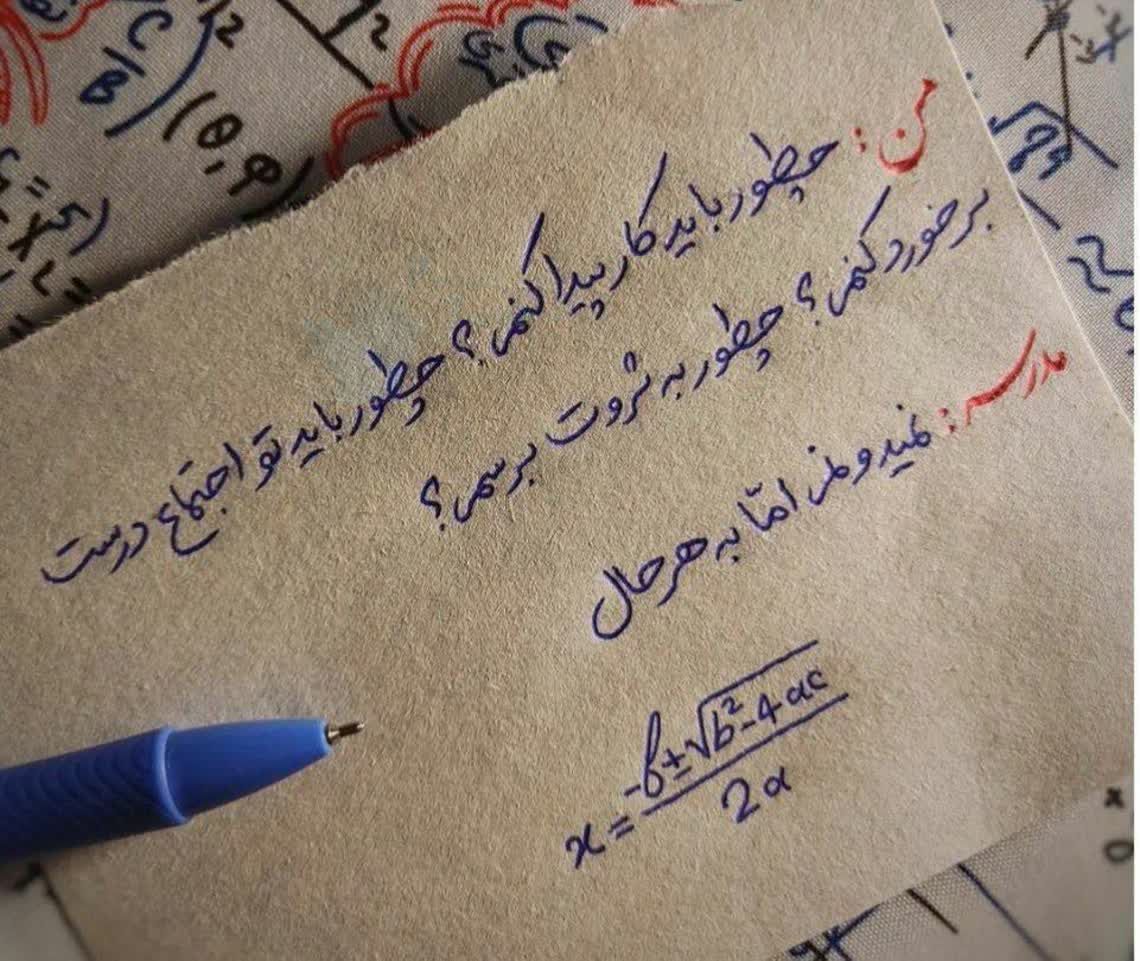 من: چطور باید کار پیدا کنم؟ چطور باید تو اجتماع درست
برخورد کنم؟ چطور به ثروت برسم؟
مدرسه: نمیدونم اما به هر حال
x = -b ± √b² - 4ac / 2a
(θ, φ)